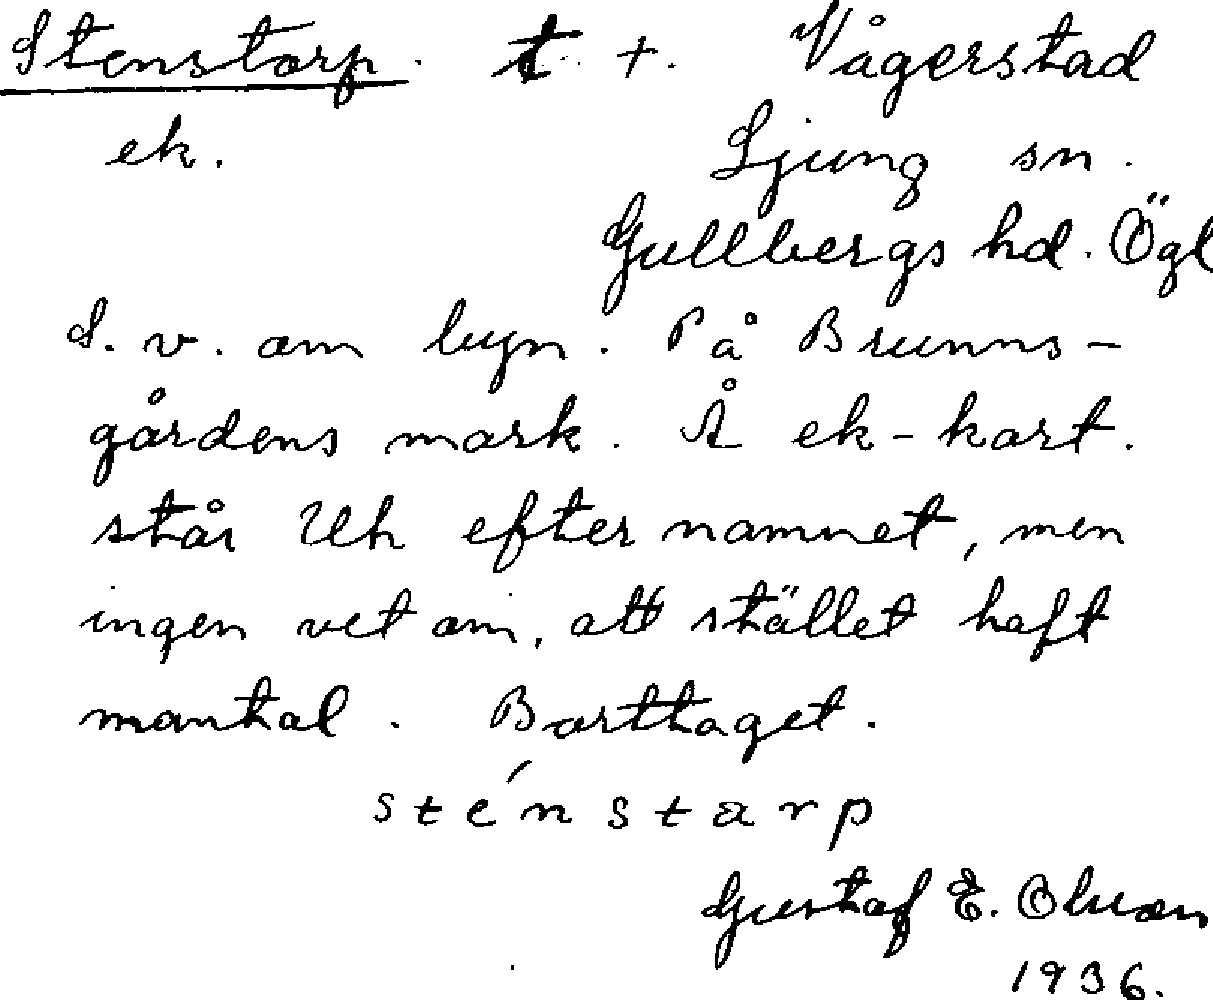 Stenstorp. t. +. Vågerstad
ek. Ljung sn.
Gullbergs hd. Ögl
S. v. om byn. På Brunns-
gårdens mark. Å ek-kart.
står Uh efter namnet, men
ingen vet om, att stället haft
mantal. Borttaget.
sténstarp
Gustaf E. Olsson
1936.